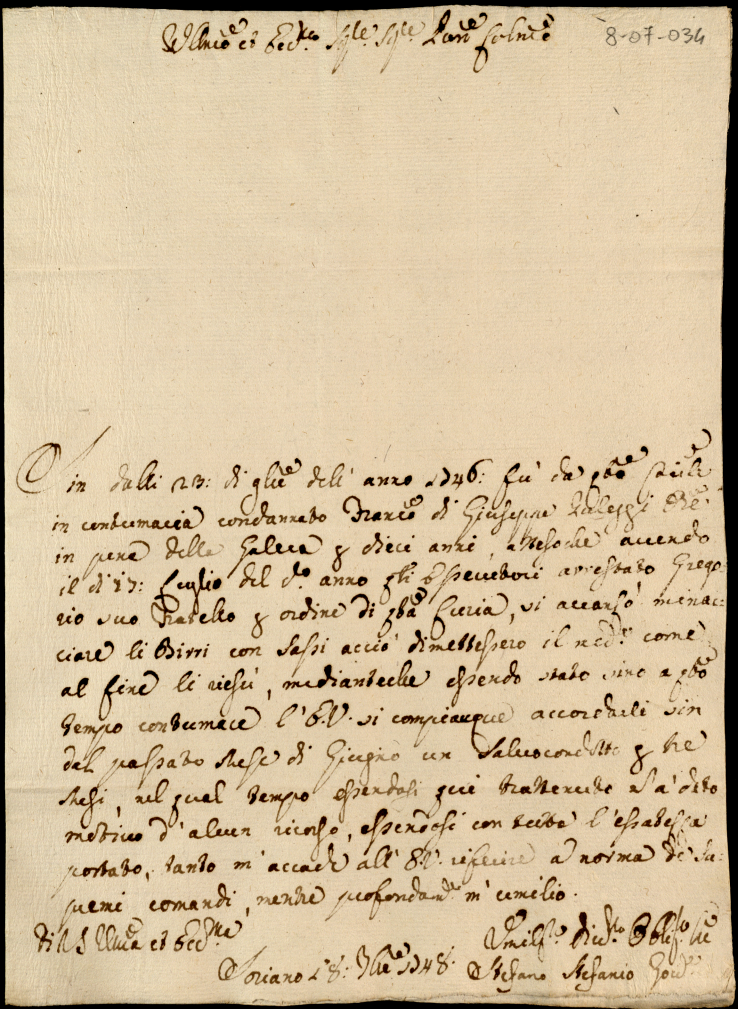 Illmo et Eccmo Sigre Sigre Pàne Colmo 8-07-034
Sin dalli 23: di glie dell' anno 1746: fù da qsto
in contumacia condannato Franco di Giuseppe
in pena della Galera p dieci anni, attesoche avendo
il dì 17: Luglio del do anno gli Essecutori arrestato Grego-
rio suo Fratello p ordine di qsta Curia, si avanzò minac-
ciare li Birri con Sassi acciò dimettessero il medo come
al fine li riescì, mediante che essendo stato sino a qsto
tempo contumace l'E.V. si compiacque accordarli sin
dal passato Mese di Giugno un Salvocondotto p tre
Mesi, nel qual tempo essendosi qui trattenuto n'à dato
motivo d'alcun ricorso, essendosi con tutta l'esatezza
portato, tanto m'accade all' E.V. riferire a norma de Su-
premi comandi, mentre profondamte m'umilio.
Di V.S Illma et Eccma
Umilso Divo Obligso Sre
Soriano 18: 7bre 1748: Stefano Stefanio Govre